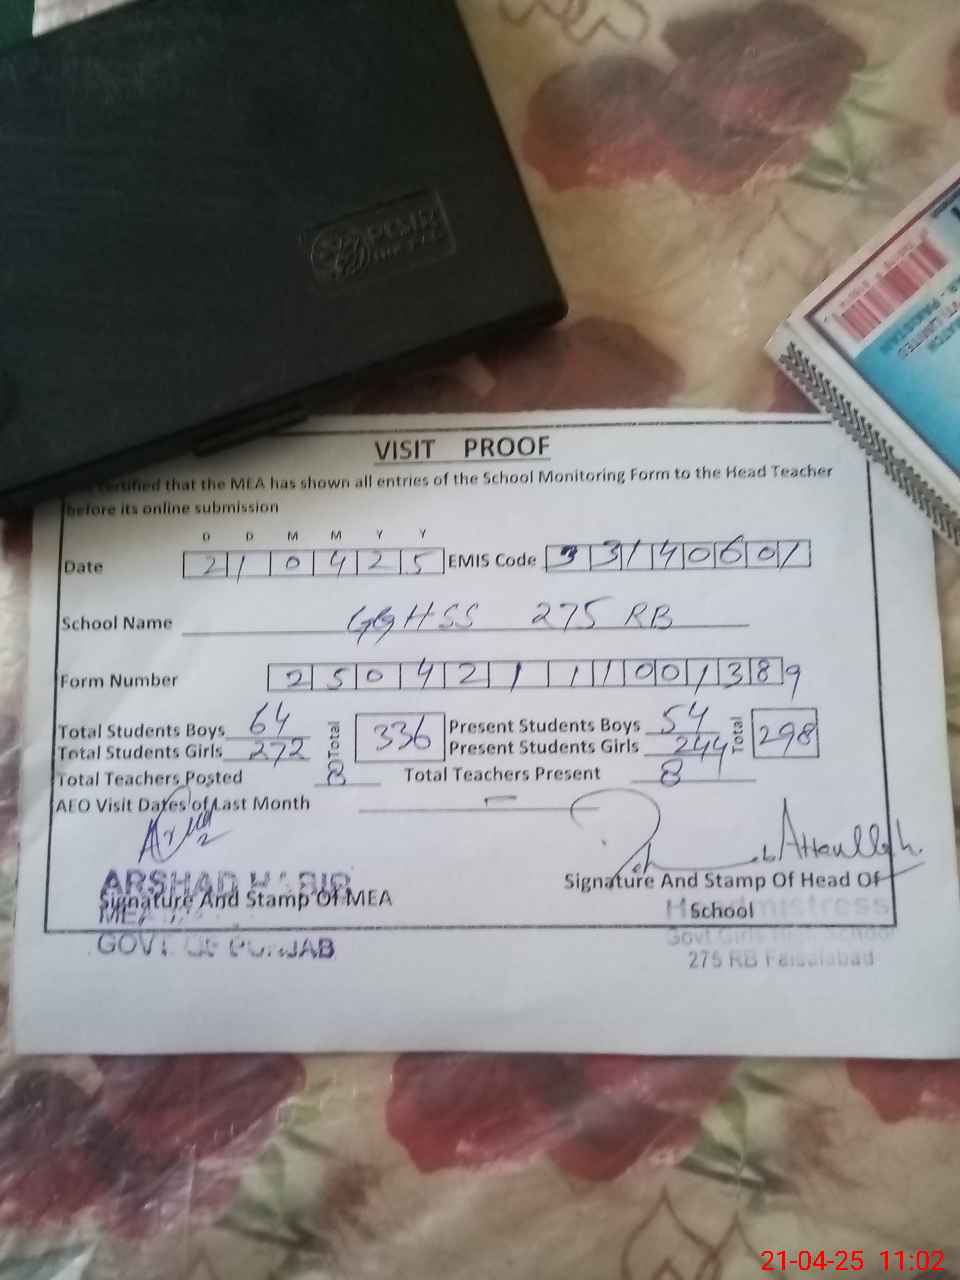 VISIT PROOF
certified that the MEA has shown all entries of the School Monitoring Form to the Head Teacher
before its online submission
D D M M Y Y
Date 2 1 0 4 2 5 EMIS Code 3 3 1 4 0 6 0 1
School Name GGHSS 275 RB
Form Number 2 5 0 4 2 1 1 1 0 0 1 3 8 9
Total Students Boys 64 Total 336 Present Students Boys 54 Total 298
Total Students Girls 272 Present Students Girls 244
Total Teachers Posted 8 Total Teachers Present 8
AEO Visit Dates of Last Month -
Attaullah
ARSHAD HABIB
Signature And Stamp Of MEA
MEA
GOVT OF PUNJAB
Signature And Stamp Of Head Of
School
Headmistress
Govt Girls High School
275 RB Faisalabad
21-04-25 11:02